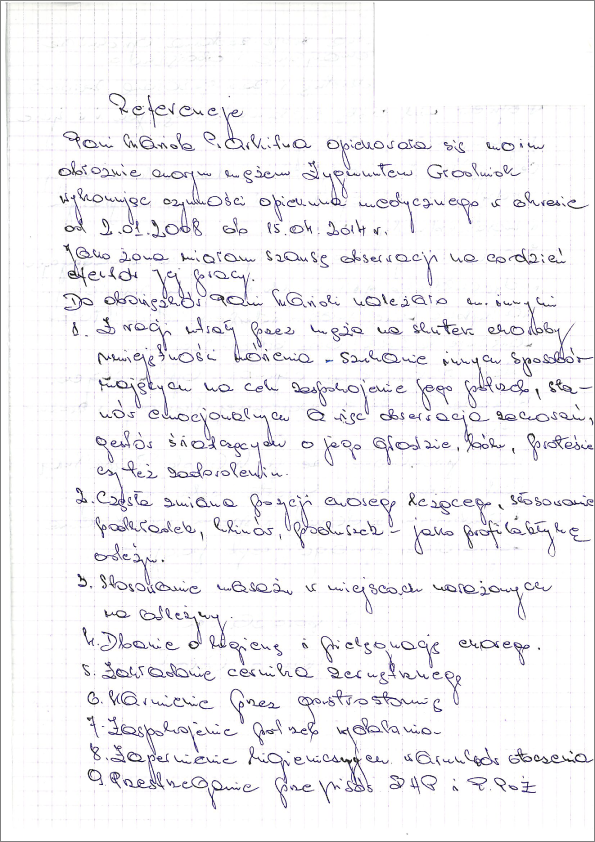 Referencje
Pani Mariola opiekowała się moim
obłożnie chorym mężem Zygmuntem
wykonując czynności opiekuna medycznego w okresie
od 2.01.2008 do 15.04.2014 r.
Jako żona miałam szansę obserwacji na codzień
efektów jej pracy.
Do obowiązków Pani Marioli należało m. innymi
1. Z racji utraty przez męża na skutek choroby
umiejętności mówienia - szukanie innych sposobów
mających na celu zaspokojenie jego potrzeb, sta-
nów emocjonalnych a więc obserwacja zachowań,
gestów świadczących o jego głodzie, bólu, proteście
czy też zadowoleniu.
2. Częsta zmiana pozycji chorego leżącego, stosowanie
podkładek, klinów, poduszek - jako profilaktykę
odleżyn.
3. Stosowanie masażu w miejscach narażonych
na odleżyny.
4. Dbanie o higienę i pielęgnację chorego.
5. Zakładanie cewnika zewnętrznego
6. Karmienie przez gastrostomię
7. Zaspokojenie potrzeb wydalania
8. Zapewnienie higienicznych warunków otoczenia
9. Przestrzeganie przepisów BHP i P.Poż